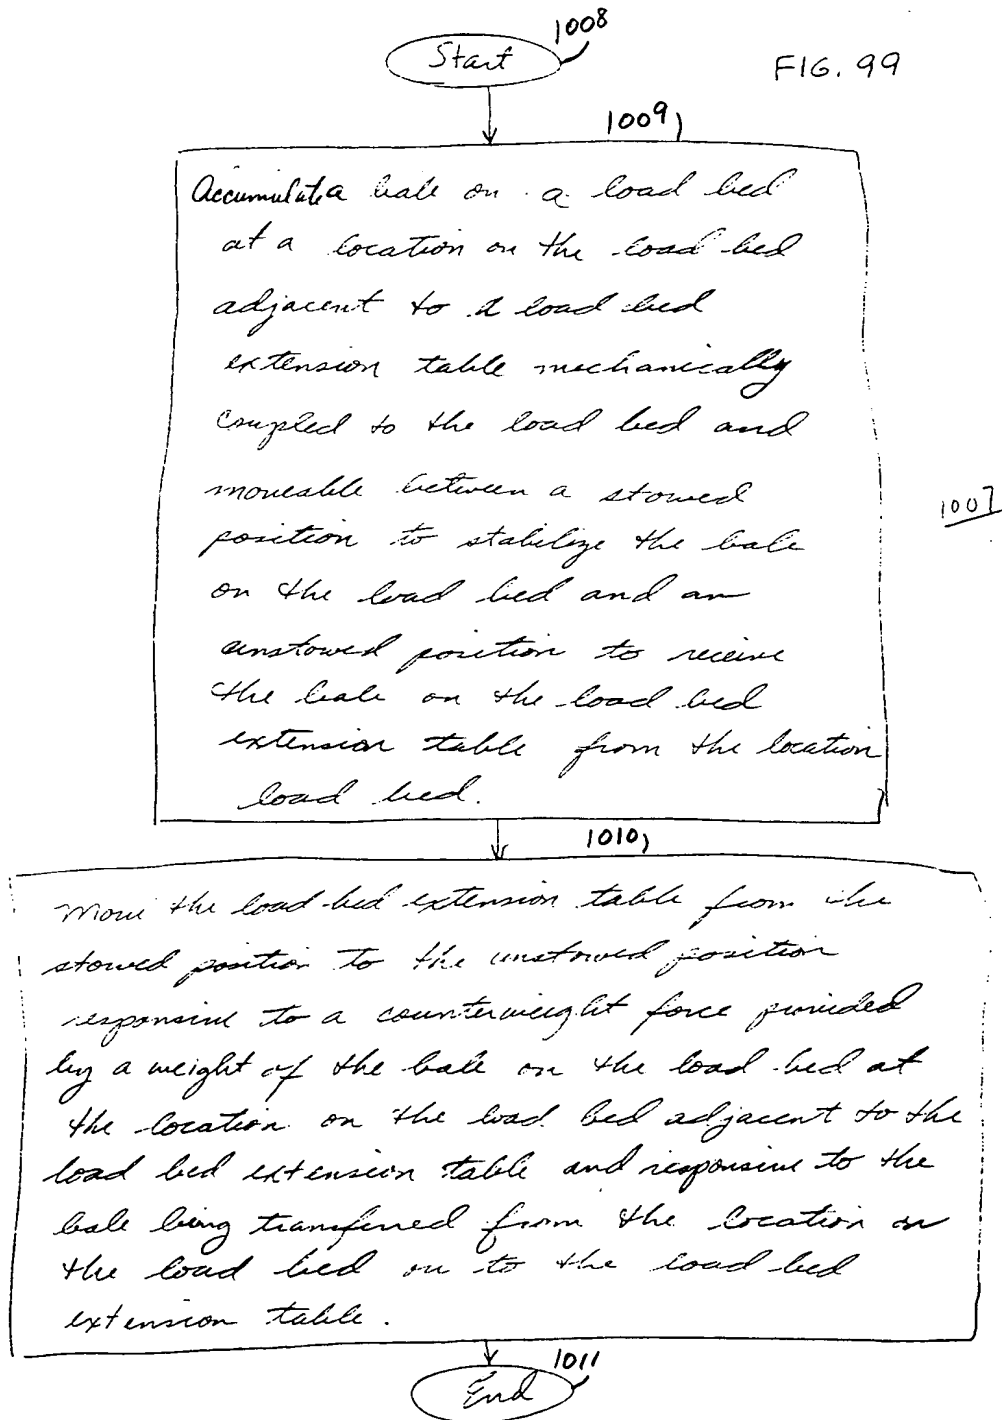 1008
Start
FIG. 99
1009
Accumulate a bale on a load bed
at a location on the load bed
adjacent to a load bed
extension table mechanically
coupled to the load bed and
moveable between a stowed
position to stabilize the bale
on the load bed and an
unstowed position to receive
the bale on the load bed
extension table from the location
load bed.
1007
1010
Move the load bed extension table from the
stowed position to the unstowed position
responsive to a counterweight force provided
by a weight of the bale on the load bed at
the location on the load bed adjacent to the
load bed extension table and responsive to the
bale being transferred from the location on
the load bed on to the load bed
extension table.
1011
End